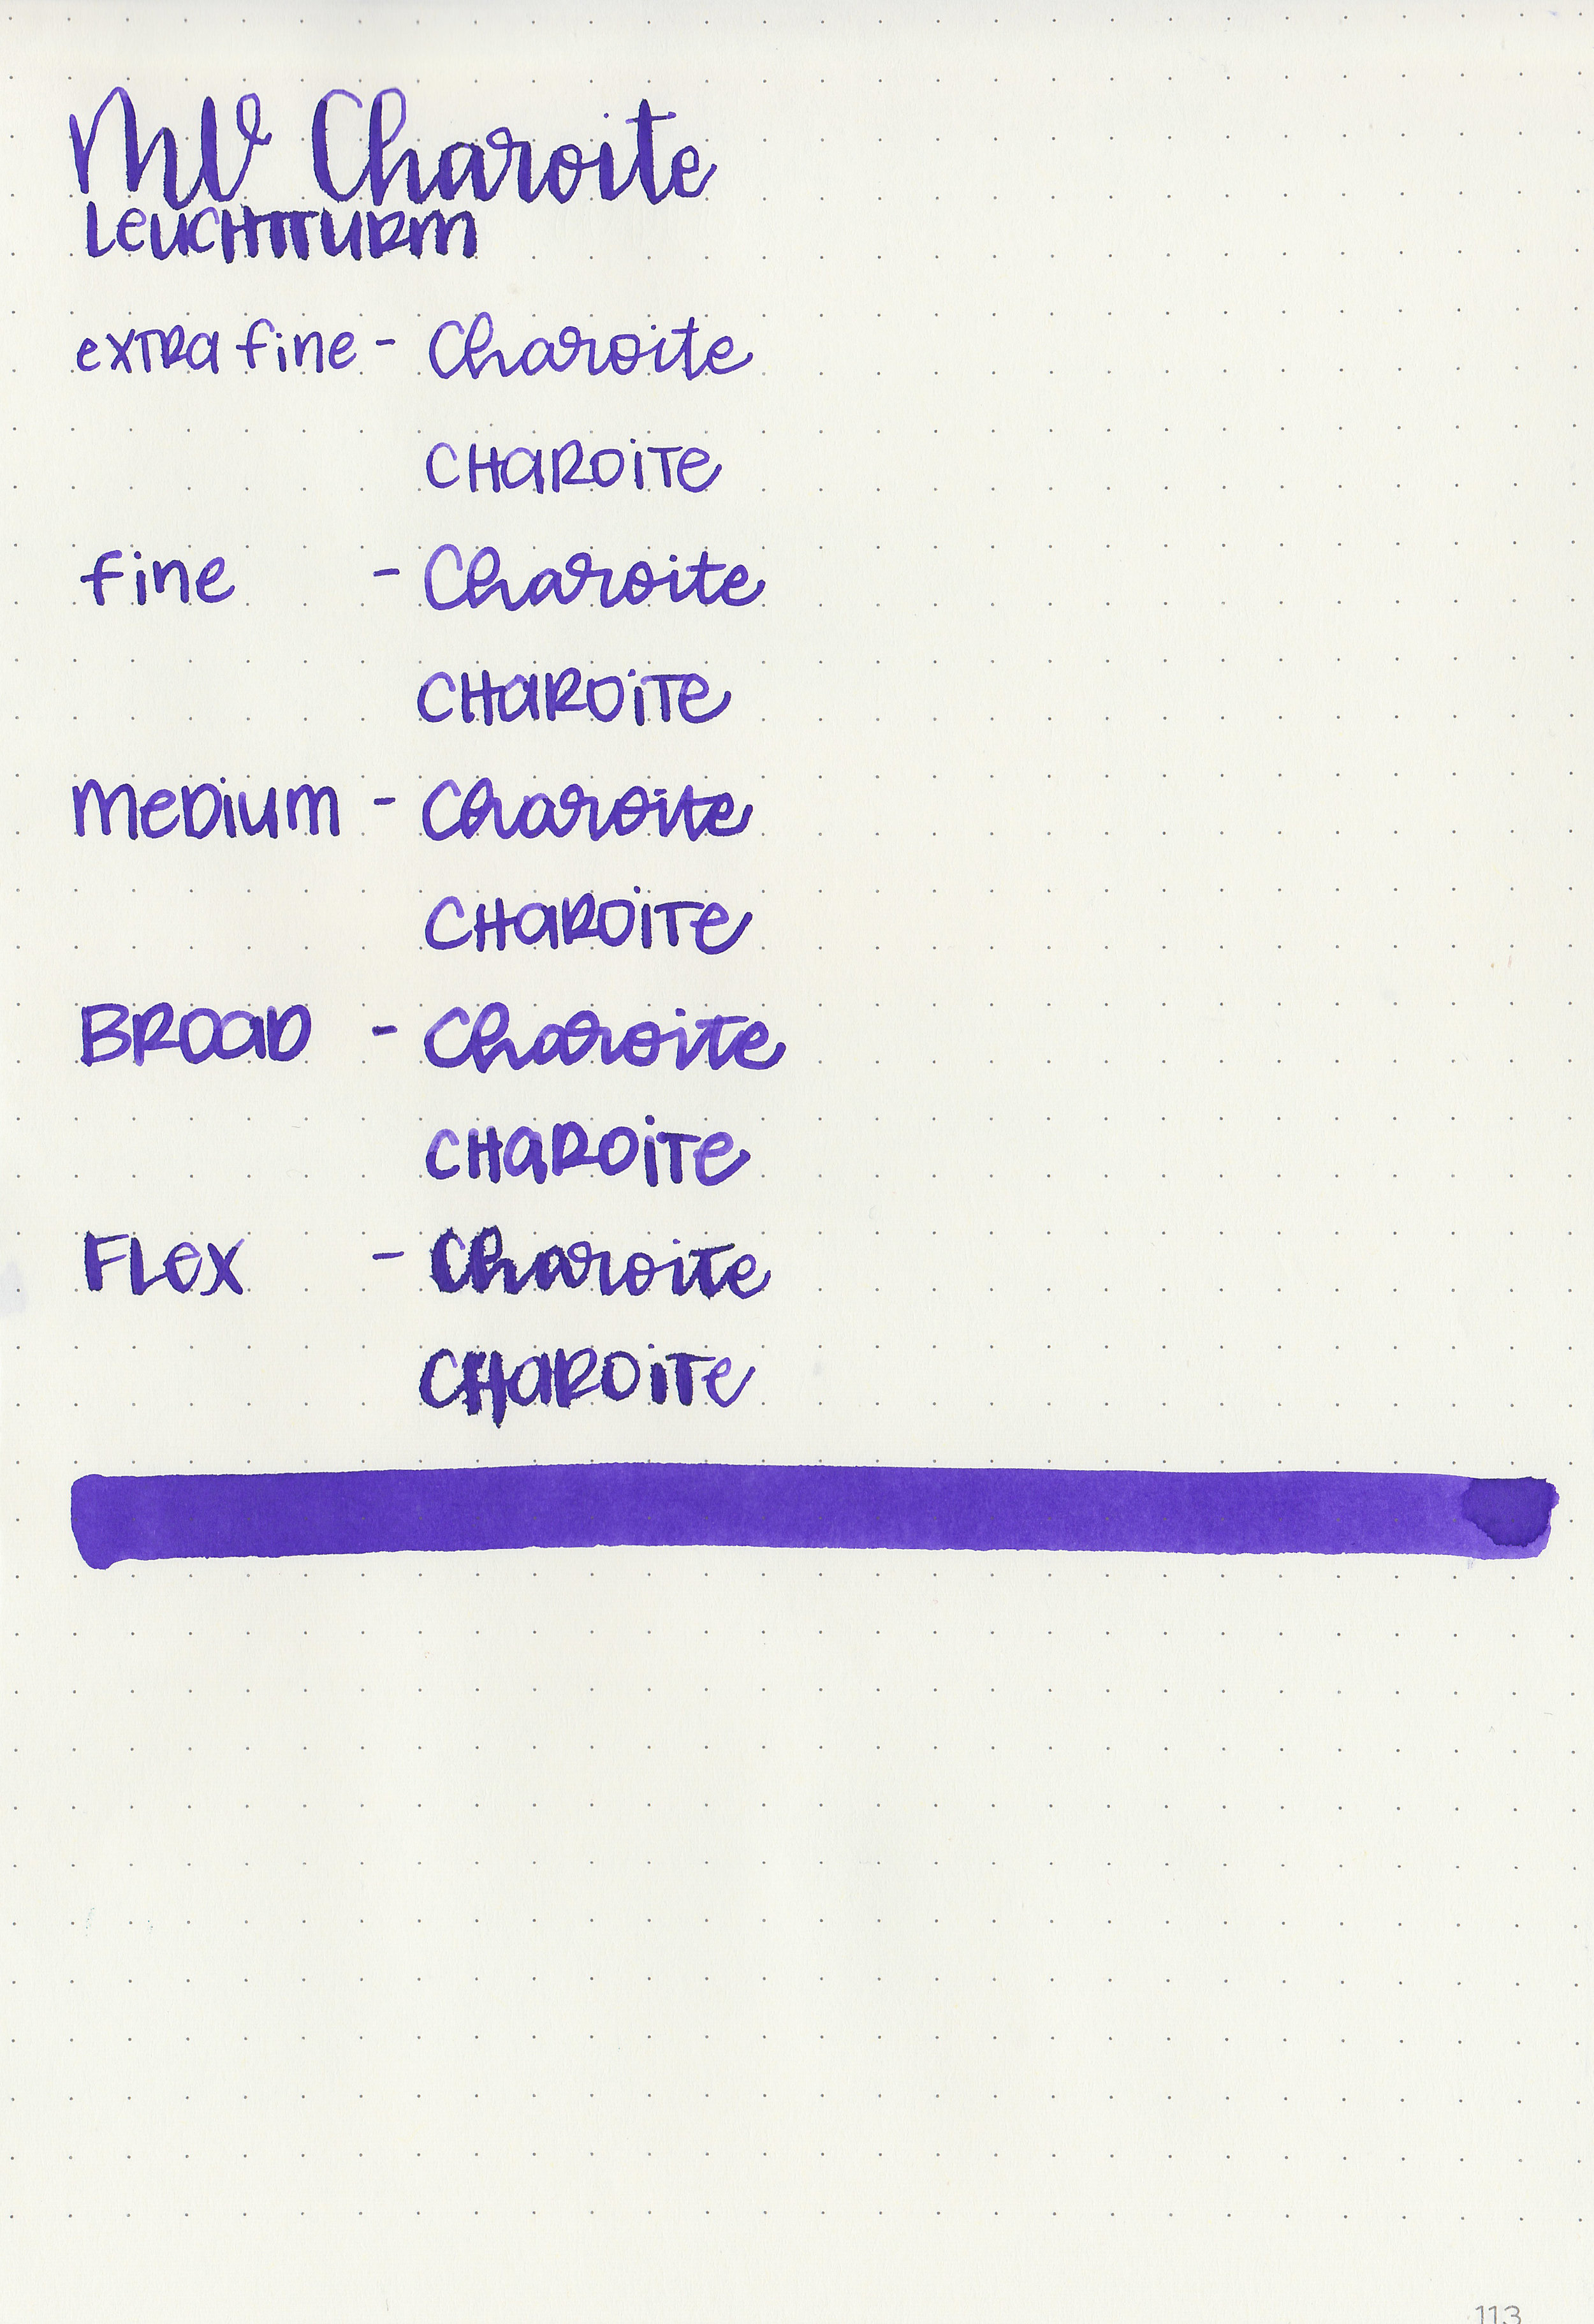 MV Charoite
LEUCHTTURM
extra fine - Charoite
CHAROITE
fine - Charoite
CHAROITE
MEDIUM - Charoite
CHAROITE
BROAD - Charoite
CHAROITE
FLEX - Charoite
CHAROITE
113